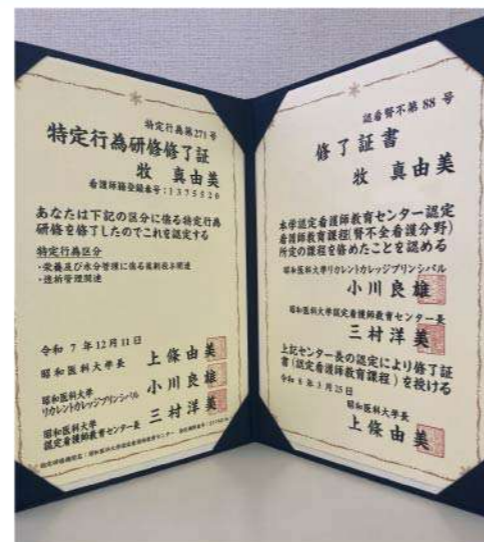 特定行為第271号
特定行為研修修了証
牧 真由美
看護師籍登録番号:1375520
あなたは下記の区分に係る特定行為
研修を修了したのでこれを認定する
特定行為区分
・栄養及び水分管理に係る薬剤投与関連
・透析管理関連
令和 7 年12月11日
昭和医科大学長 上條由美
昭和医科大学
リカレントカレッジプリンシパル 小川良雄
昭和医科大学
認定看護師教育センター長 三村洋美
認看腎不第 88 号
修了証書
牧 真由美
本学認定看護師教育センター認定
看護師教育課程(腎不全看護分野)
所定の課程を修めたことを認める
昭和医科大学リカレントカレッジプリンシパル
小川良雄
昭和医科大学認定看護師教育センター長
三村洋美
上記センター長の認定により修了証
書(認定看護師教育課程)を授ける
令和 8 年 3 月 25日
昭和医科大学長
上條由美